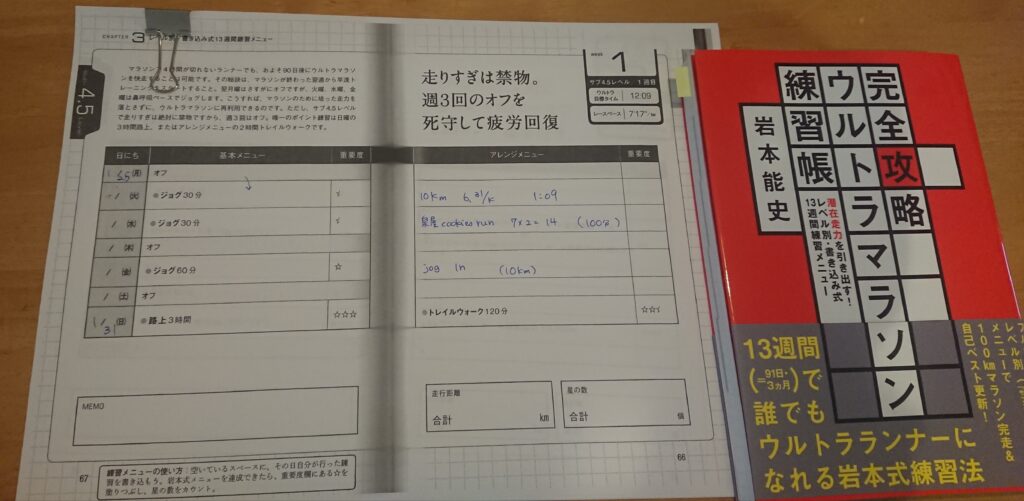 CHAPTER 3 レベル別・書き込み式13週間練習メニュー
4.5
マラソンで4時間が切れないランナーでも、およそ90日後にウルトラマラソン
を快走することは可能です。その秘訣は、マラソンが終わった翌週から早速ト
レーニングをスタートすること。翌月曜はさすがにオフですが、火曜、水曜、金
曜は鼻呼吸ペースでジョグします。こうすれば、マラソンのために培った走力を
落とさずに、ウルトラマラソンに再利用できるのです。ただし、サブ4.5レベル
で走りすぎは絶対に禁物ですから、週3回はオフ。唯一のポイント練習は日曜の
3時間路上、またはアレンジメニューの2時間トレイルウォークです。
走りすぎは禁物。
週3回のオフを
死守して疲労回復
week 1
サブ4.5レベル 1週目
ウルトラ目標タイム 12:09
レースペース 7'17"/km
日にち 基本メニュー 重要度 アレンジメニュー 重要度
1/25(月) オフ
/(火) ※ジョグ30分 ☆ 10km 6.31/k 1:09
/(水) ※ジョグ30分 ☆ cookies run 7×2=14 (100分)
/(木) オフ
/(金) ※ジョグ60分 ☆ jog in (10km)
/(土) オフ
1/31(日) ※路上3時間 ☆☆☆ ※トレイルウォーク120分 ☆☆☆
MEMO
走行距離
合計 km
星の数
合計 個
67
練習メニューの使い方:空いているスペースに、その日自分が行った練
習を書き込もう。岩本式メニューを達成できたら、重要度欄にある☆を
塗りつぶし、星の数をカウント。
66
完全攻略
ウルトラマラソン
練習帳
岩本能史
潜在走力を引き出す!
レベル別・書き込み式
13週間練習メニュー
レベル別
メニューで
100kmマラソン完走&
自己ベスト更新!
13週間
(=91日・3ヵ月)で
誰でも
ウルトラランナーに
なれる岩本式練習法